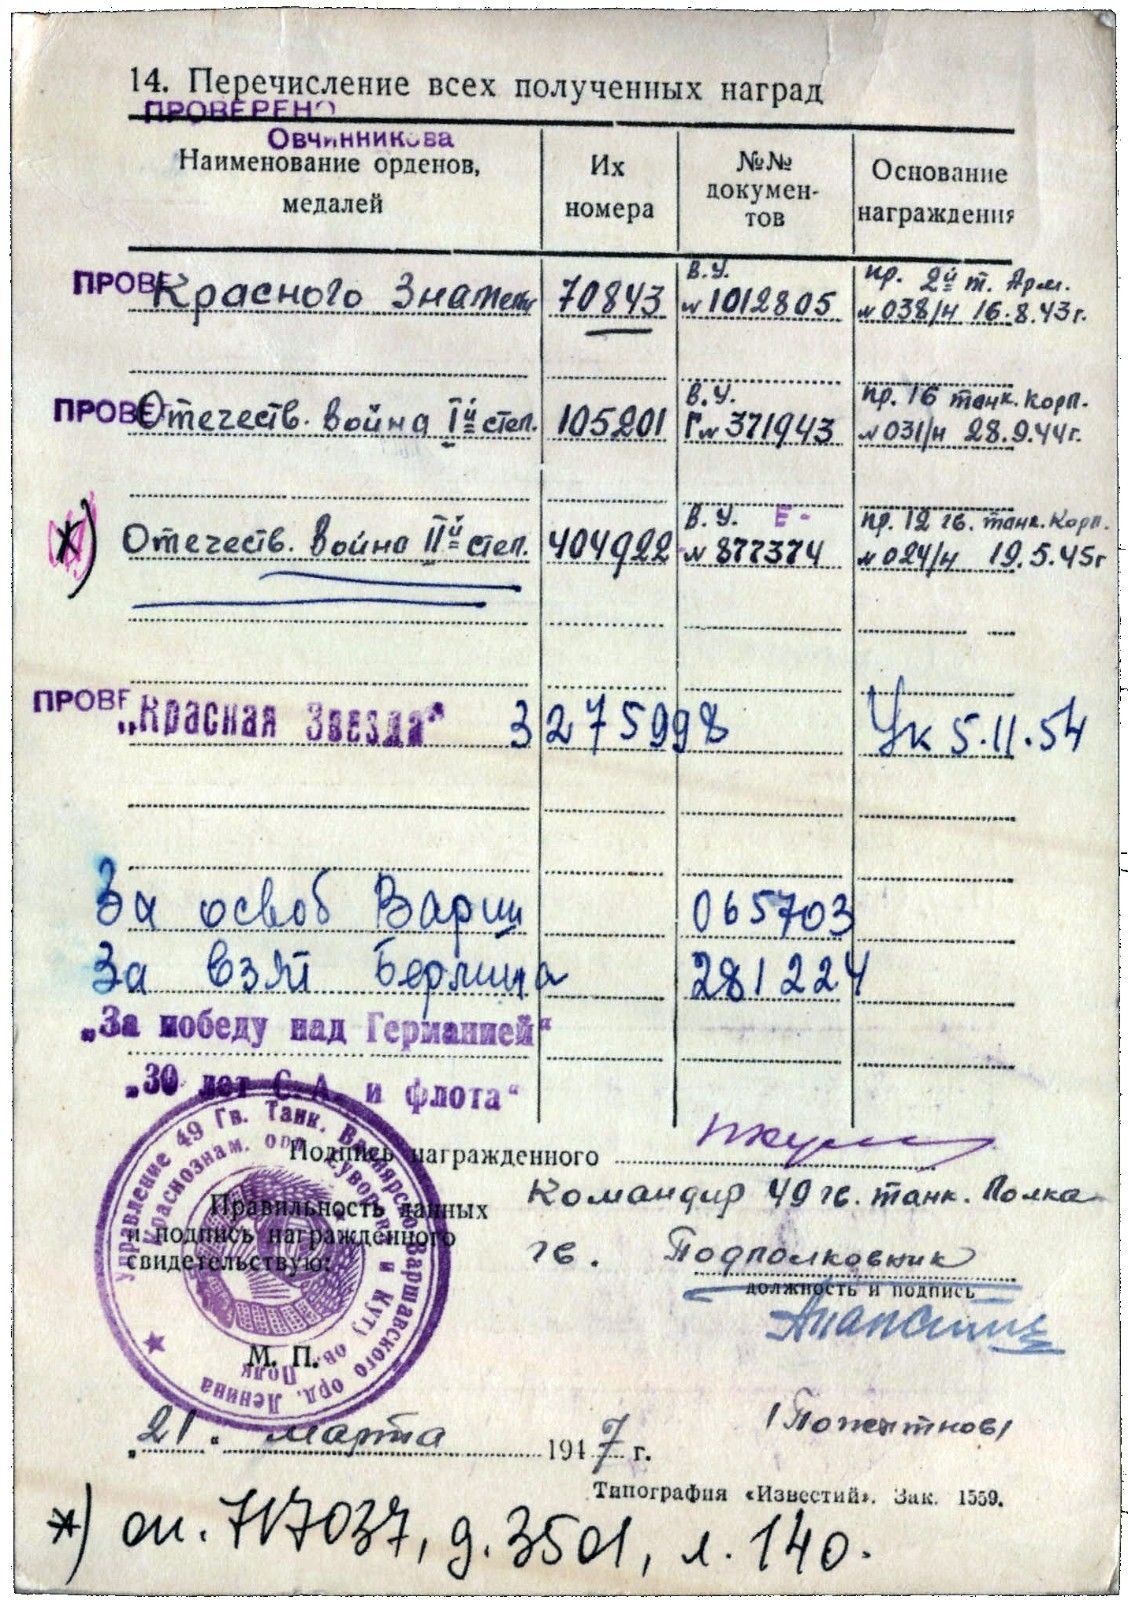 14. Перечисление всех полученных наград
ПРОВЕРЕНО
Овчинникова
Наименование орденов, медалей | Их номера | №№ докумен-тов | Основание награждения
ПРОВЕ Красного Знамени 70843 В.У. № 1012805 пр. 2й т. Арм. № 038/н 16.8.43г.
ПРОВЕ Отечеств. Война Iй степ. 105201 В.У. Г № 371943 пр. 16 танк. Корп. № 031/н 28.9.44г.
*) Отечеств. Война IIй степ. 404922 В.У. Е - № 877374 пр. 12 гв. танк. Корп. № 024/н 19.5.45г
ПРОВЕ „Красная Звезда“ 3275998 Ук 5.11.54
За освоб Варш 065703
За взят Берлина 281224
„За победу над Германией“
„30 лет С.А. и флота“
Управление 49 Гв. Танк. Вапнярско Варшавского орд. Ленина
Краснознам. орд. Суворов и Кут ов. Полк
Подпись награжденного
Командир 49 гв. танк. Полка
Правильность данных
и подпись награжденного
свидетельствую:
гв. Подполковник
должность и подпись
М. П.
„21“ марта 1947 г.
Типография «Известий». Зак. 1559.
*) оп. 717037, д. 3501, л. 140.